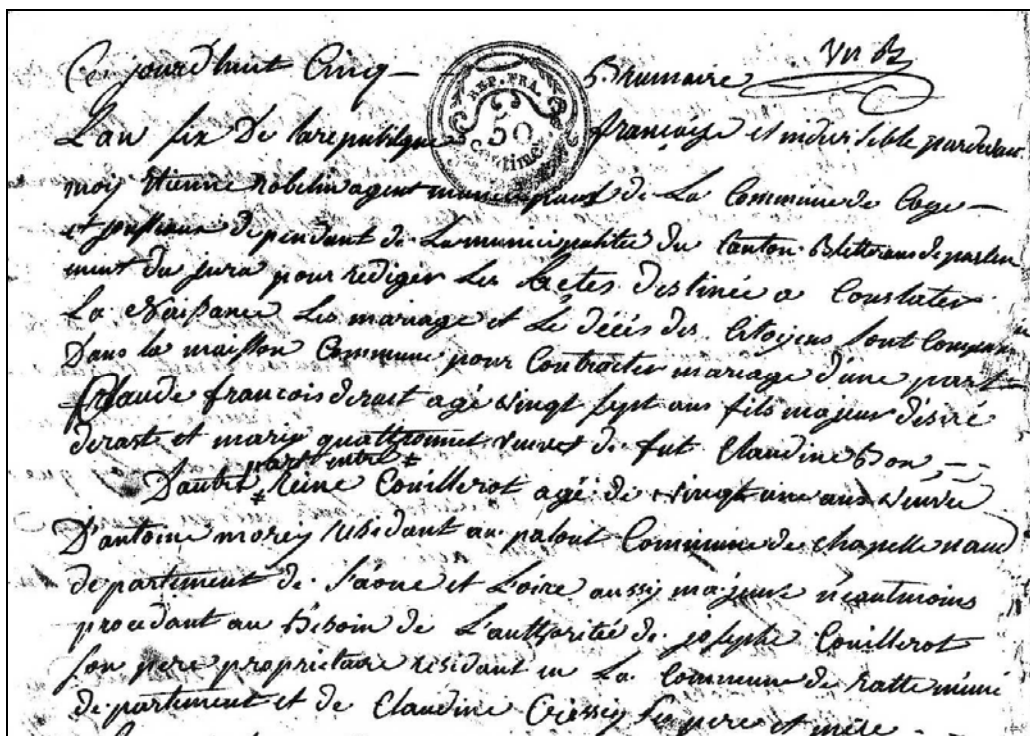 Ce jourd'huit Cinq — Brumaire
REP. FRA.
50
Centimes
L'an six De la republique française et indivisible pardevant
moy Etienne Robelin agent municipal de La Commune de Coge —
et dependant de La municipalité du Canton Bletterans departem
ment du jura pour rediger Les Actes destinée a Constater
La Naissance Les mariage et Le décés des Citoyens sont Comparu
Dans la maison Commune pour Contracter mariage d'une part
Claude francois derast agé vingt sept ans fils majeur désiré
deraste et marie veuve de fut Claudine Bon
D'autre part entre Reine Couillerot agé de vingt une ans veuve
D'antoine morey residant au palout Commune de chapelle naud
departement de Saône et Loire aussy majeure néautmoins
procedant au Besoin de L'authoritée de josephe Couillerot
son pere proprietaire residant en La Commune de ratte même
departement et de Claudine Cressy ses pere et mére